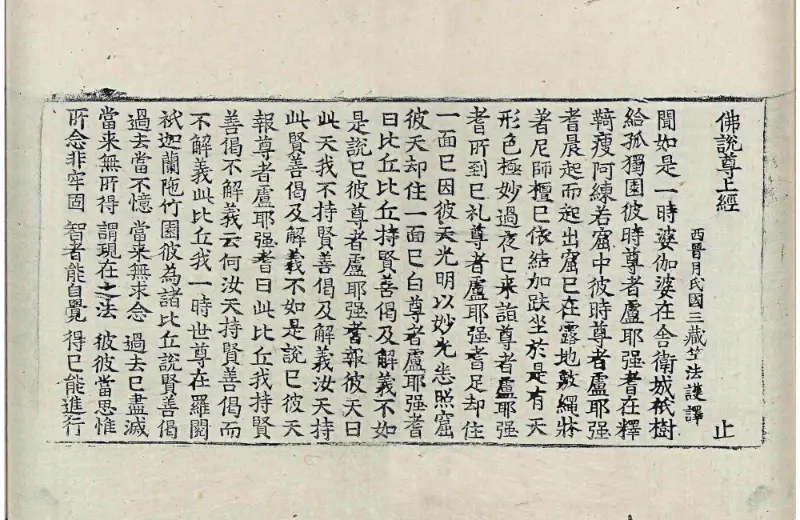 佛說尊上經
止
西晉月氏國三藏竺法護譯
聞如是一時婆伽婆在舍衛城祇樹
給孤獨園彼時尊者盧耶强耆在釋
鞫瘦阿練若窟中彼時尊者盧耶强
耆晨起而起出窟已在露地敷繩牀
著尼師檀已依結加趺坐於是有天
形色極妙過夜已來詣尊者盧耶强
耆所到已礼尊者盧耶强耆足却住
一面已因彼天光明以妙光悉照窟
彼天却住一面已白尊者盧耶强耆
曰比丘比丘持賢善偈及解義不如
是說已彼尊者盧耶强耆報彼天曰
此天我不持賢善偈及解義汝天持
此賢善偈及解義不如是說已彼天
報尊者盧耶强耆曰此比丘我持賢
善偈不解義云何汝天持賢善偈而
不解義此比丘我一時世尊在羅閱
祇迦蘭陁竹園彼為諸比丘說賢善偈
過去當不憶 當來無求念 過去已盡滅
當來無所得 謂現在之法 彼彼當思惟
所念非牢固 智者能自覺 得已能進行